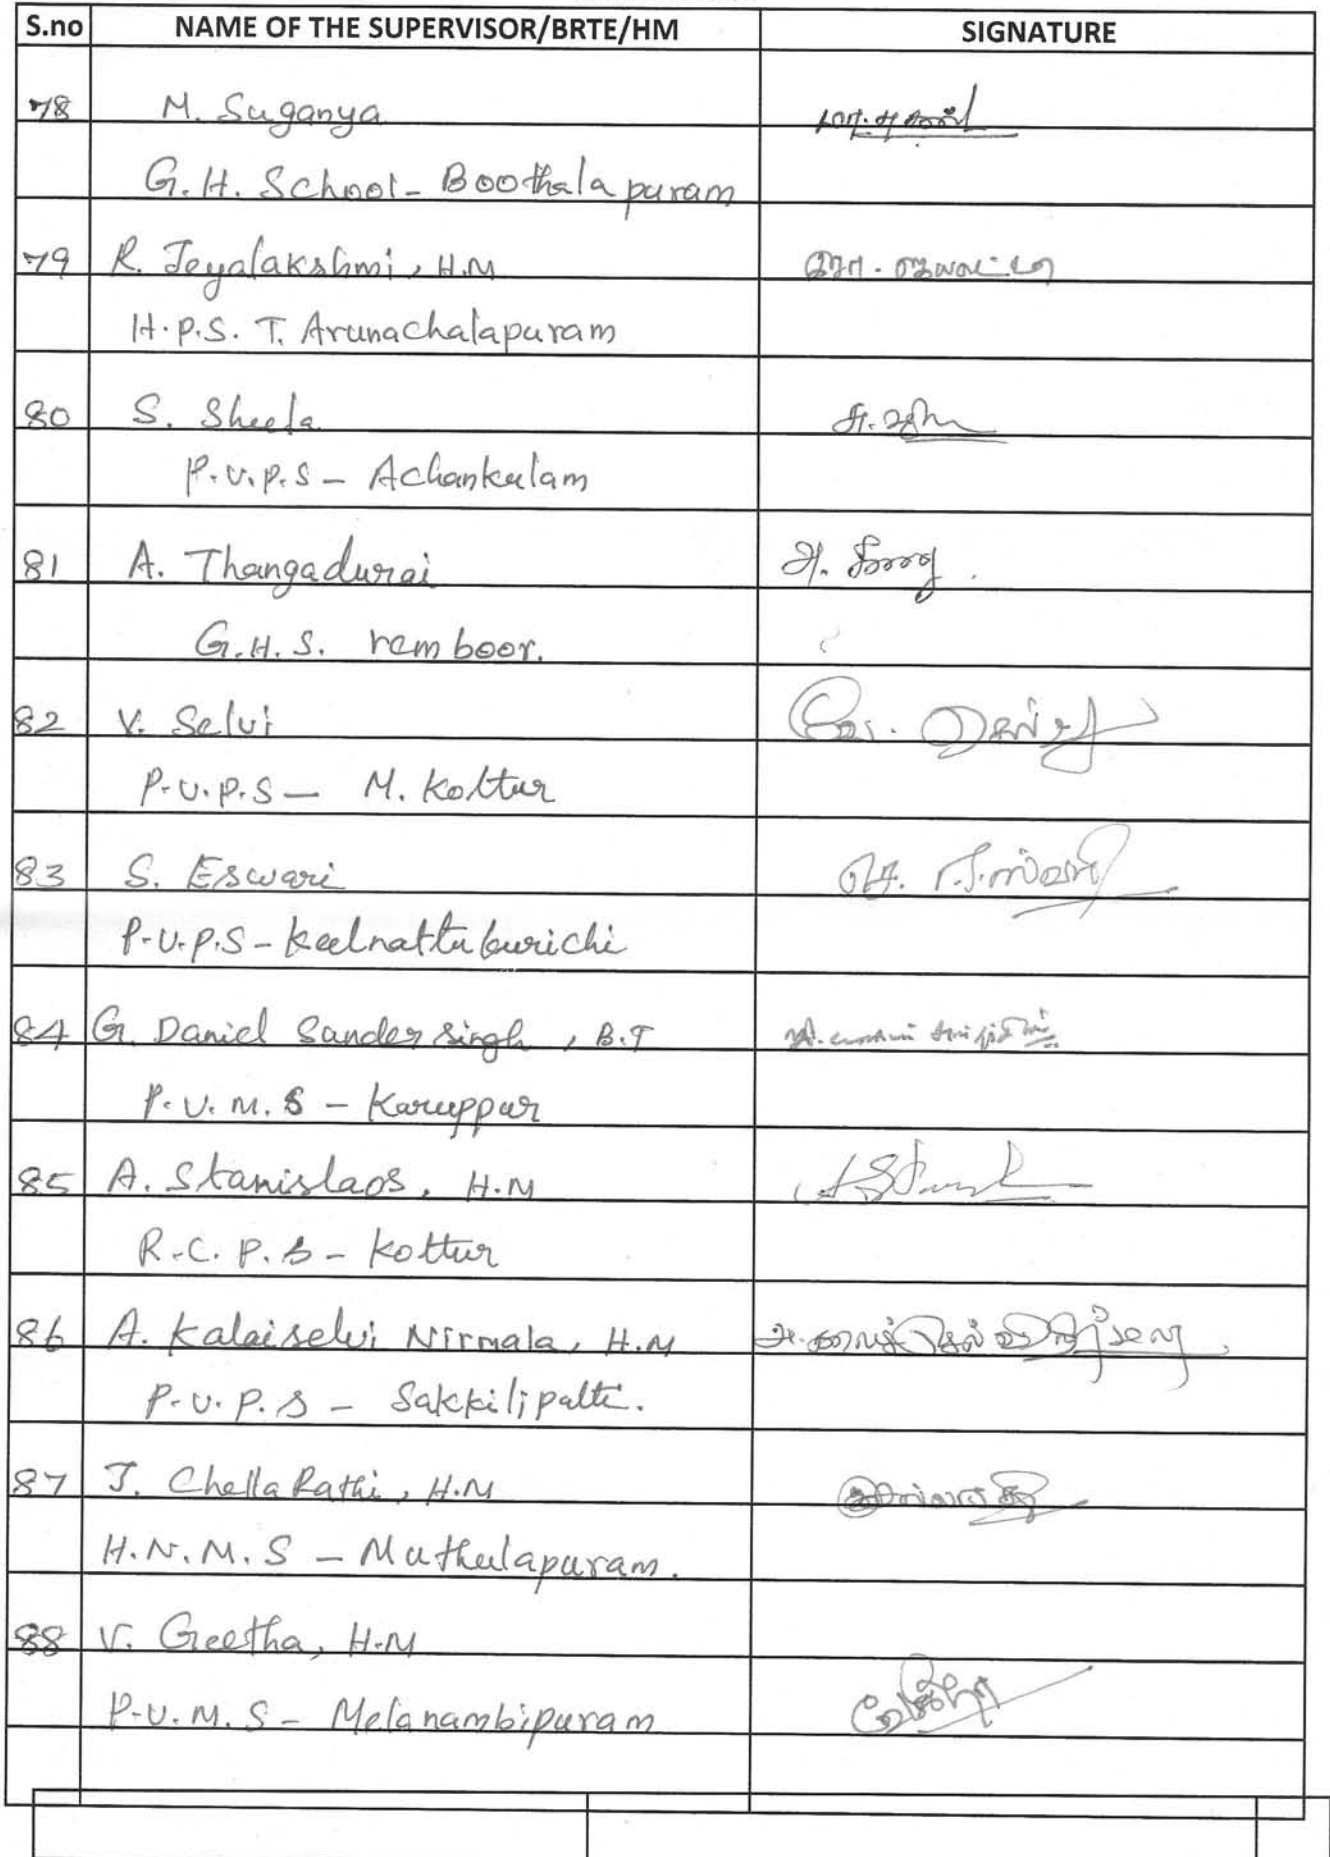 S.no NAME OF THE SUPERVISOR/BRTE/HM SIGNATURE
78 M. Suganya
G.H. School - Boothalapuram
79 R. Jeyalakshmi, H.M இரா. ஜெயலட்சுமி
H.P.S. T. Arunachalapuram
80 S. Sheela சு. ஷீலா
P.U.P.S - Achankulam
81 A. Thangadurai
G.H.S. vemboor.
82 V. Selvi வே. செல்வி
P.U.P.S - M. Kottur
83 S. Eswari செ. ஈஸ்வரி
P.U.P.S - Keelnattukurichi
84 G. Daniel Sander Singh, B.T
P.U.M.S - Karuppur
85 A. Stanislaos, H.M
R.C.P.S - Kottur
86 A. Kalaiselvi Nirmala, H.M அ. கலைச்செல்வி நிர்மலா
P.U.P.S - Sakkilipatti.
87 J. Chella Rathi, H.M
H.N.M.S - Muthulapuram.
88 V. Geetha, H.M
P.U.M.S - Melanambipuram